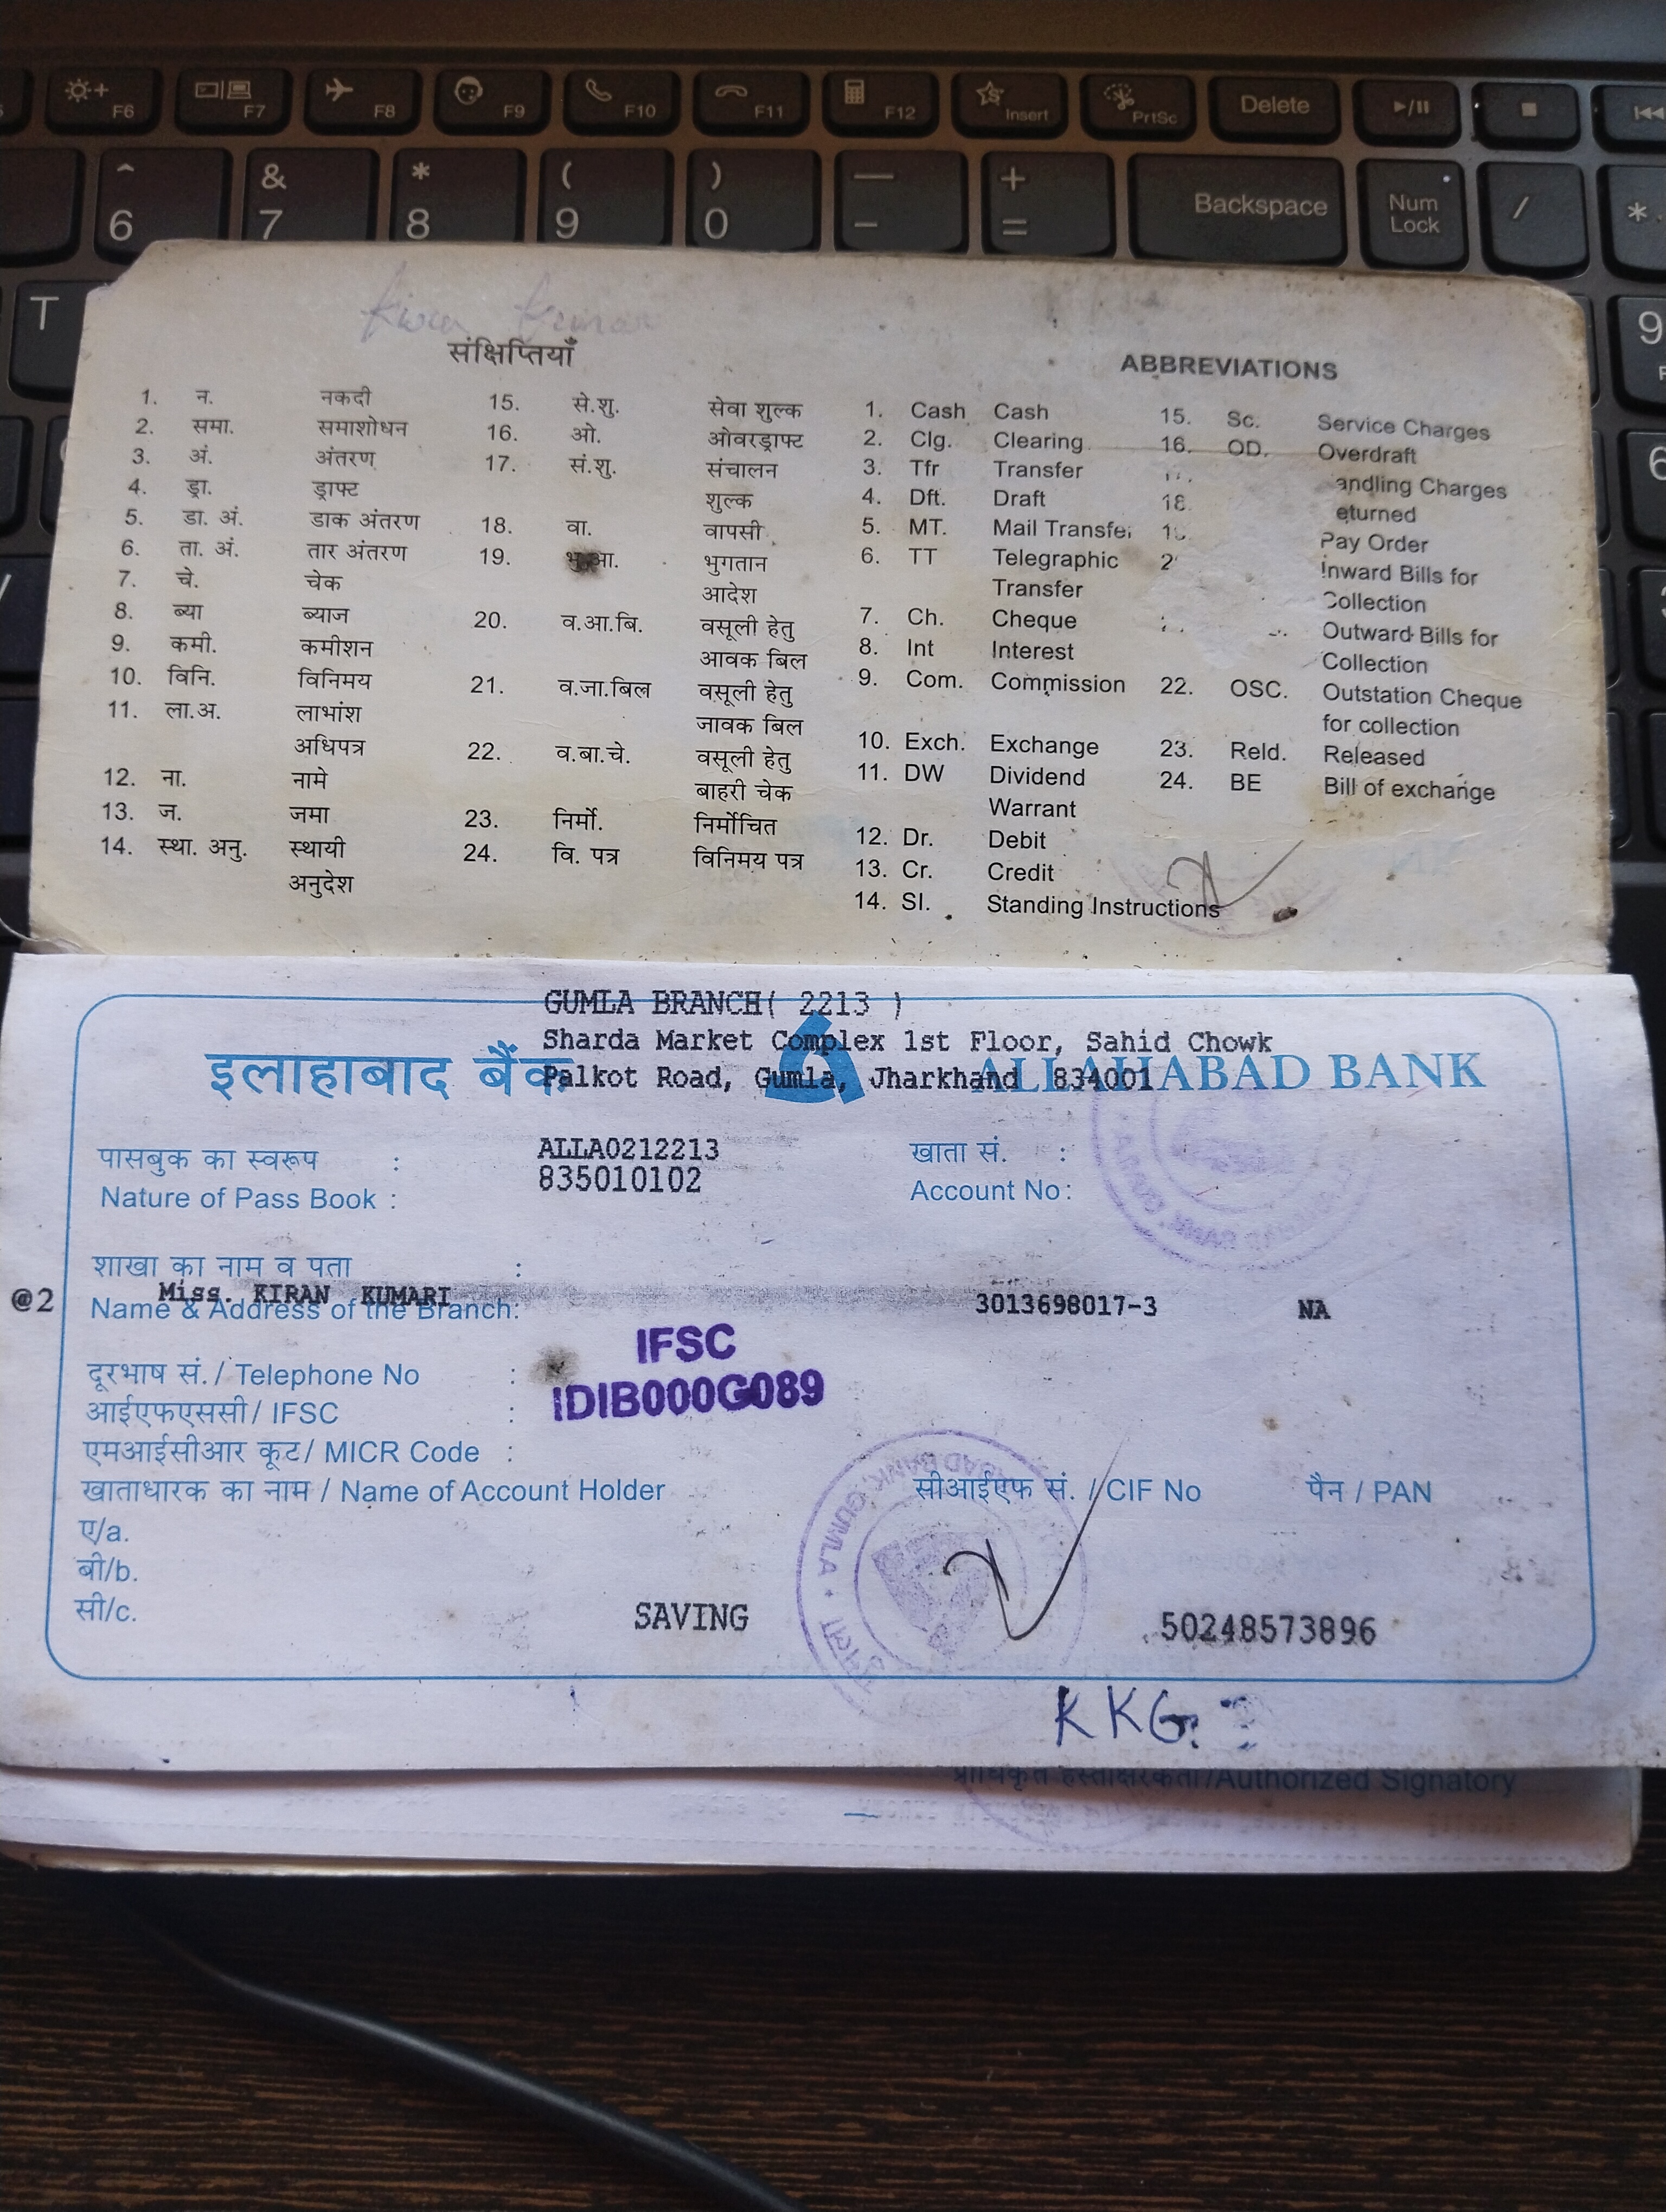 F6 F7 F8 F9 F10 F11 F12 Insert PrtSc Delete
^ & * ( ) — +
6 7 8 9 0 - = Backspace Num Lock / *
T
संक्षिप्तियाँ
1. न. नकदी
2. समा. समाशोधन
3. अं. अंतरण
4. ड्रा. ड्राफ्ट
5. डा. अं. डाक अंतरण
6. ता. अं. तार अंतरण
7. चे. चेक
8. ब्या ब्याज
9. कमी. कमीशन
10. विनि. विनिमय
11. ला.अ. लाभांश
अधिपत्र
12. ना. नामे
13. ज. जमा
14. स्था. अनु. स्थायी
अनुदेश
15. से.शु. सेवा शुल्क
16. ओ. ओवरड्राफ्ट
17. सं.शु. संचालन
शुल्क
18. वा. वापसी
19. भु.आ. भुगतान
आदेश
20. व.आ.बि. वसूली हेतु
आवक बिल
21. व.जा.बिल वसूली हेतु
जावक बिल
22. व.बा.चे. वसूली हेतु
बाहरी चेक
23. निर्मो. निर्मोचित
24. वि. पत्र विनिमय पत्र
ABBREVIATIONS
1. Cash Cash
2. Clg. Clearing
3. Tfr Transfer
4. Dft. Draft
5. MT. Mail Transfer
6. TT Telegraphic
Transfer
7. Ch. Cheque
8. Int Interest
9. Com. Commission
10. Exch. Exchange
11. DW Dividend
Warrant
12. Dr. Debit
13. Cr. Credit
14. SI. Standing Instructions
15. Sc. Service Charges
16. OD. Overdraft
andling Charges
18. eturned
Pay Order
Inward Bills for
Collection
Outward Bills for
Collection
22. OSC. Outstation Cheque
for collection
23. Reld. Released
24. BE Bill of exchange
GUMLA BRANCH( 2213 )
Sharda Market Complex 1st Floor, Sahid Chowk
Palkot Road, Gumla, Jharkhand 834001
इलाहाबाद बैंक ALLAHABAD BANK
पासबुक का स्वरूप : ALLA0212213 खाता सं. :
Nature of Pass Book : 835010102 Account No :
शाखा का नाम व पता :
@2 Miss. KIRAN KUMARI 3013698017-3 NA
Name & Address of the Branch:
IFSC
IDIB000G089
दूरभाष सं. / Telephone No :
आईएफएससी/ IFSC :
एमआईसीआर कूट/ MICR Code :
खाताधारक का नाम / Name of Account Holder सीआईएफ सं. / CIF No पैन / PAN
ए/a.
बी/b.
सी/c.
SAVING 50248573896
KKG.
प्राधिकृत हस्ताक्षरकर्ता/Authorized Signatory